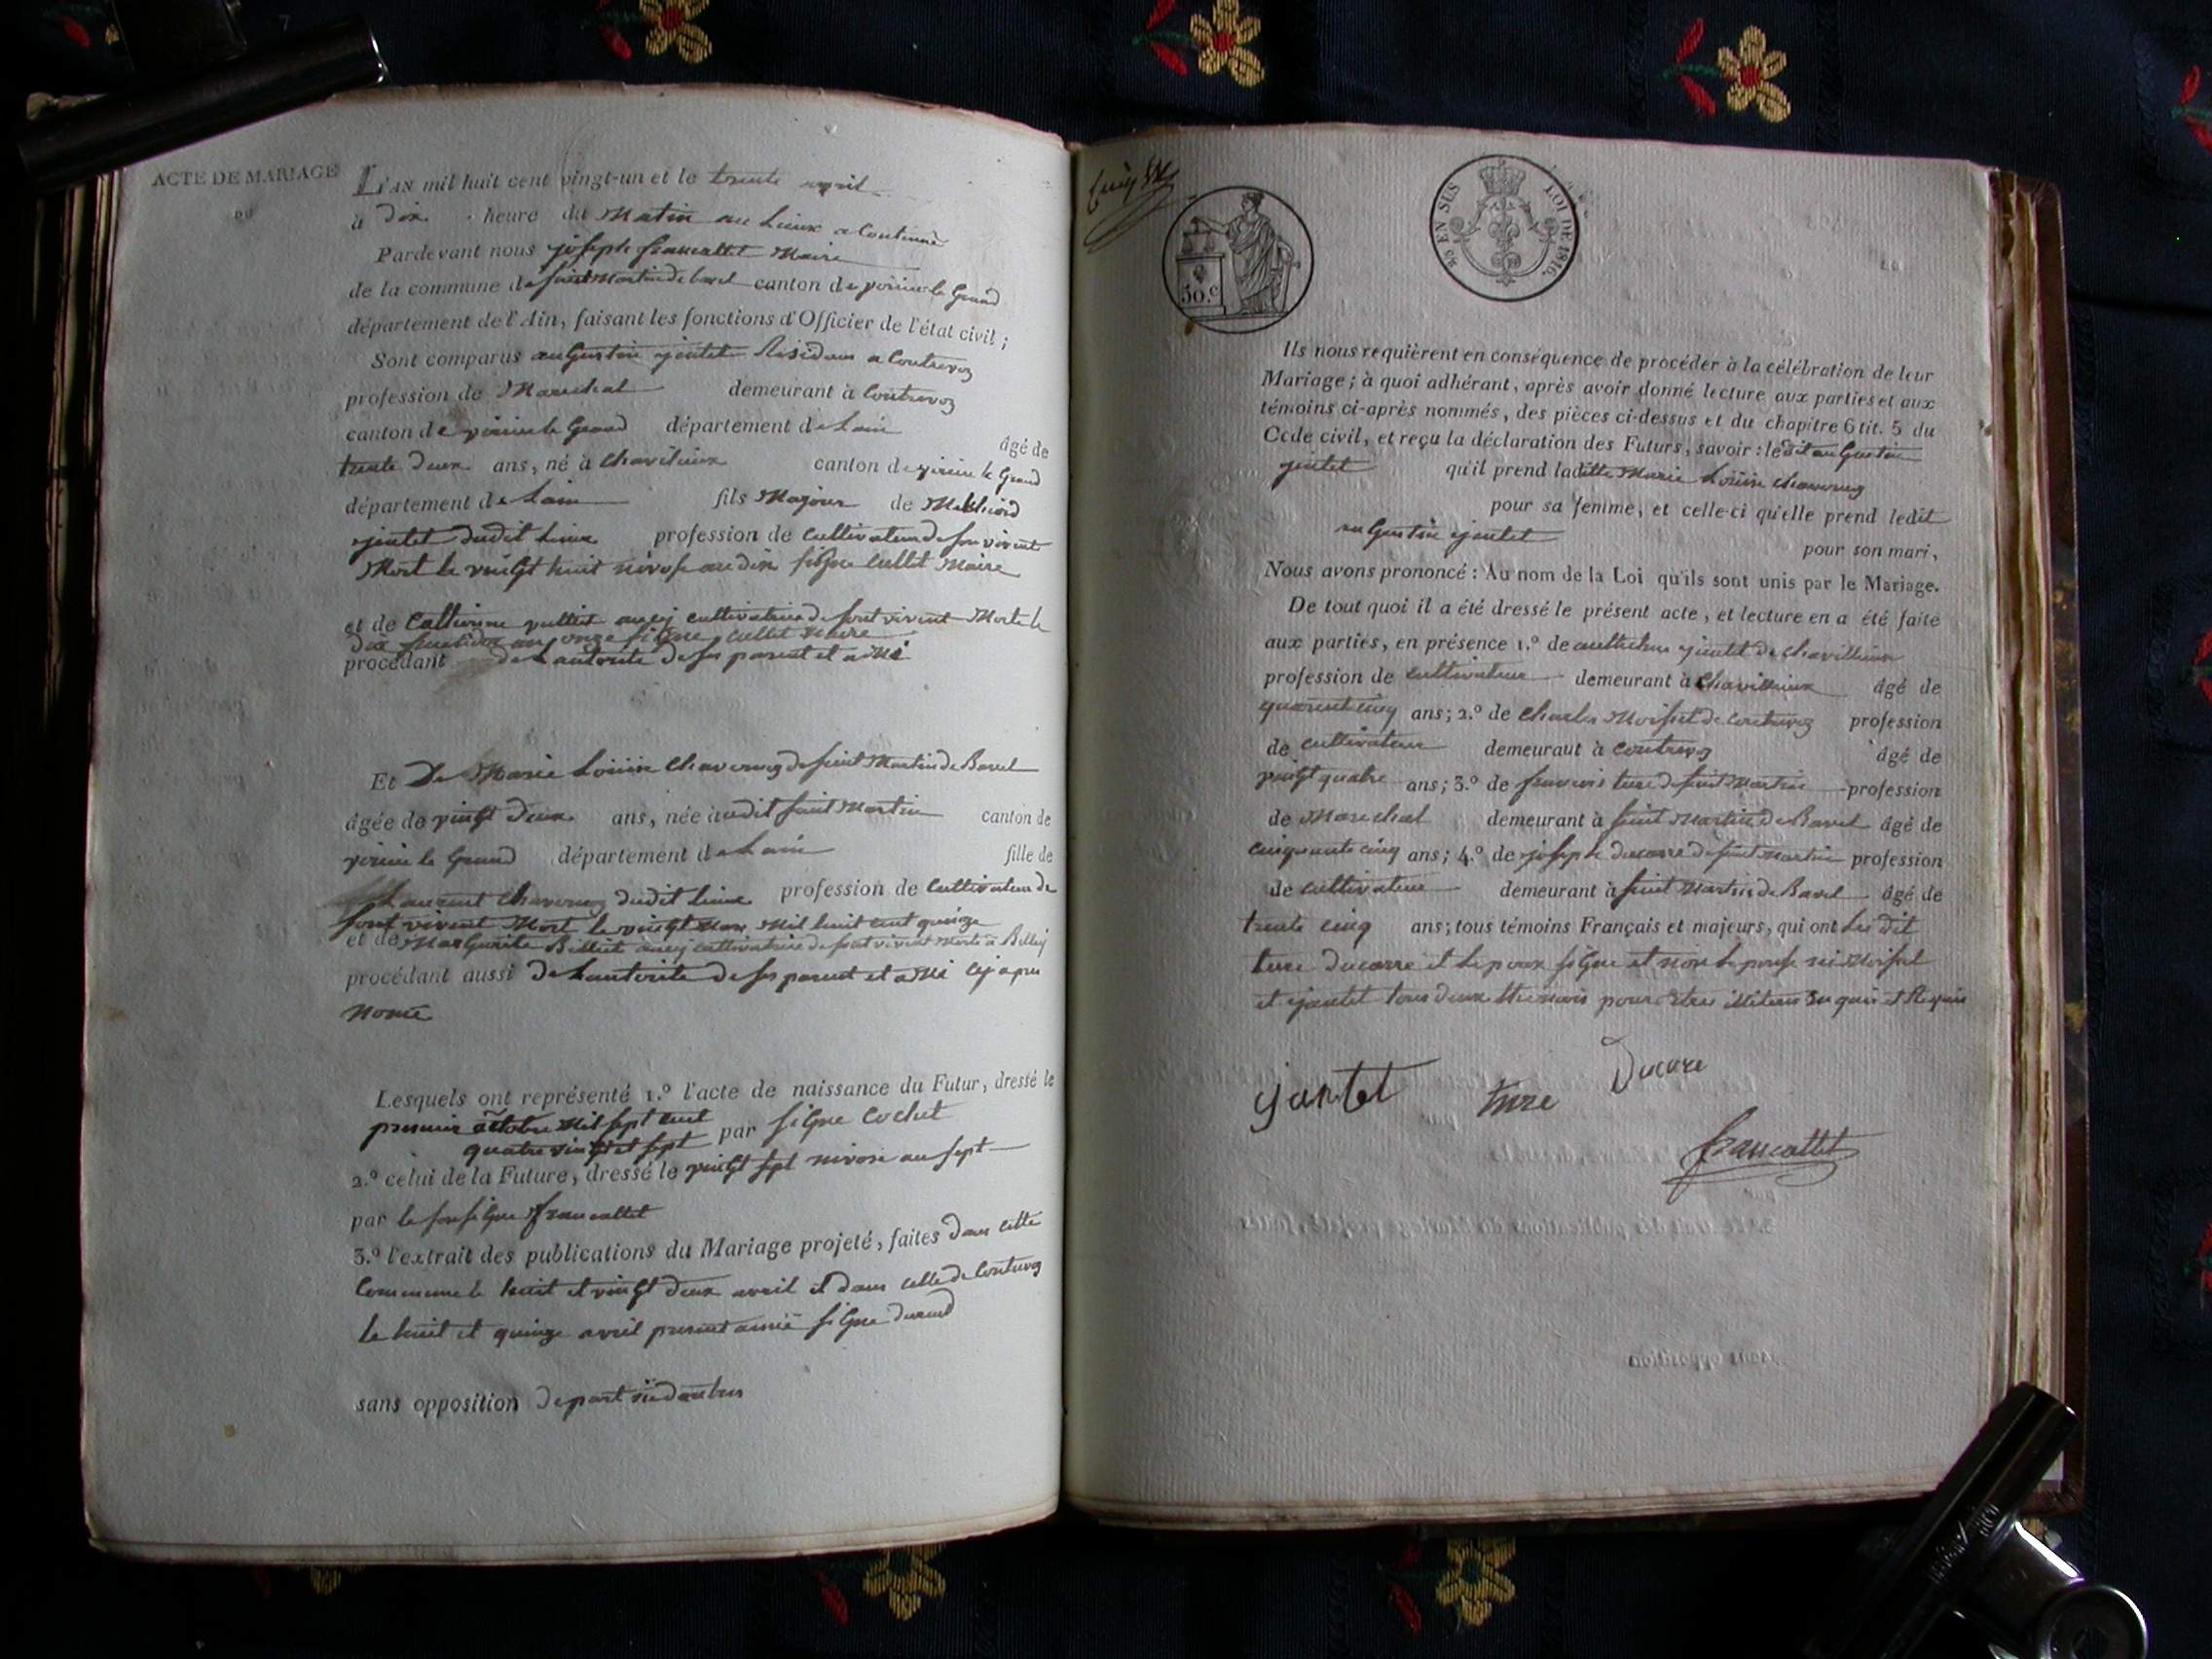 ACTE DE MARIAGE
DU
L'AN mil huit cent vingt-un et le trente avril
à dix heure du Matin au Lieux a
Pardevant nous joseph francallet Maire
de la commune de saint Martin de bavel canton de virieu le Grand
département de l'Ain, faisant les fonctions d'Officier de l'état civil ;
Sont comparus augustin Residant a Contrevoz
profession de Marechal demeurant à Contrevoz
canton de virieu le Grand département de Lain
âgé de
trente deux ans, né à Chavilieux canton de virieu le Grand
département de Lain fils Majeur de
dudit Lieux profession de Cultivateur de son vivent
Mort le vingt huit nivose an dix signe Cullet Maire
et de Catherine cultivatrice de sont vivent Morte le
dix an onze signe Cullet Maire
procédant de Lautorite de ses parent et ami
Et De Marie Louise Chavornoz de saint Martin de Bavel
âgée de vingt deux ans, née audit saint Martin canton de
virieu le Grand département de Lain fille de
Laurent Chavornoz dudit Lieux profession de Cultivateur de
sont vivent Mort le vingt Mil huit cent quinze
et de Marguerite cultivatrice de sont vivent Morte a
procédant aussi de Lautorite de ses parent et ami
nomé
Lesquels ont représenté 1.º l'acte de naissance du Futur, dressé le
premier octobre Mil sept cent
quatre vingt et sept par signe Cochet
2.º celui de la Future, dressé le vingt sept nivose an sept
par le sousigne francallet
3.º l'extrait des publications du Mariage projeté, faites dans cette
Commune le huit et vingt deux avril et dans celle de Contrevoz
le huit et quinze avril present anné signe durand
sans opposition de part ni dautres
50.C
EN SUS LOI DE 1816.
Ils nous requièrent en conséquence de procéder à la célébration de leur
Mariage ; à quoi adhérant, après avoir donné lecture aux parties et aux
témoins ci-après nommés, des pièces ci-dessus et du chapitre 6 tit. 5 du
Code civil, et reçu la déclaration des Futurs, savoir : ledit augustin
qu'il prend laditte Marie Louise Chavornoz
pour sa femme, et celle-ci qu'elle prend ledit
augustin
pour son mari,
Nous avons prononcé : Au nom de la Loi qu'ils sont unis par le Mariage.
De tout quoi il a été dressé le présent acte, et lecture en a été faite
aux parties, en présence 1.º de de Chavillieux
profession de cultivateur demeurant à Chavillieux âgé de
quarent cinq ans ; 2.º de Charles Moisset de Contrevoz profession
de cultivateur demeurant à Contrevoz âgé de
vingt quatre ans ; 3.º de francois ture de saint Martin profession
de Marechal demeurant à saint Martin de Bavel âgé de
cinquante cinq ans ; 4.º de joseph ducarre de saint Martin profession
de cultivateur demeurant à saint Martin de Bavel âgé de
trente cinq ans ; tous témoins Français et majeurs, qui ont Les dit
ture ducarre et Lepoux signe et non Lepouse ni Moisset
et tous deux pour etre illiteré enquis et Requis
ture
Ducare
francallet